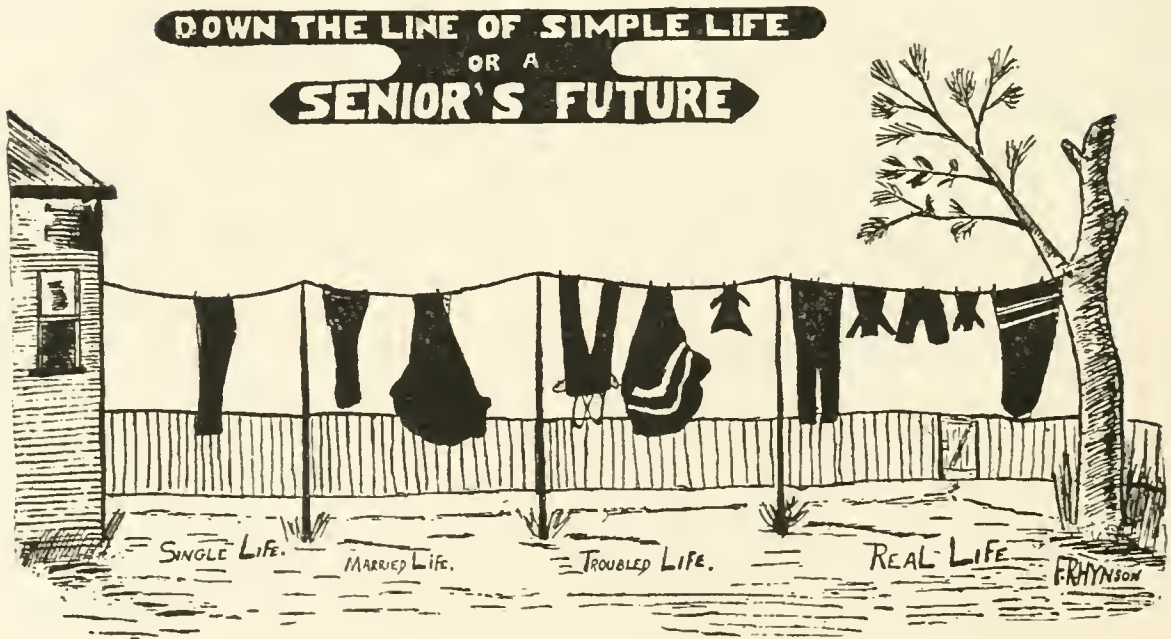 DOWN THE LINE OF SIMPLE LIFE
OR A
SENIOR'S FUTURE
SINGLE LIFE.
MARRIED LIFE.
TROUBLED LIFE.
REAL LIFE
F.R.HYNSON